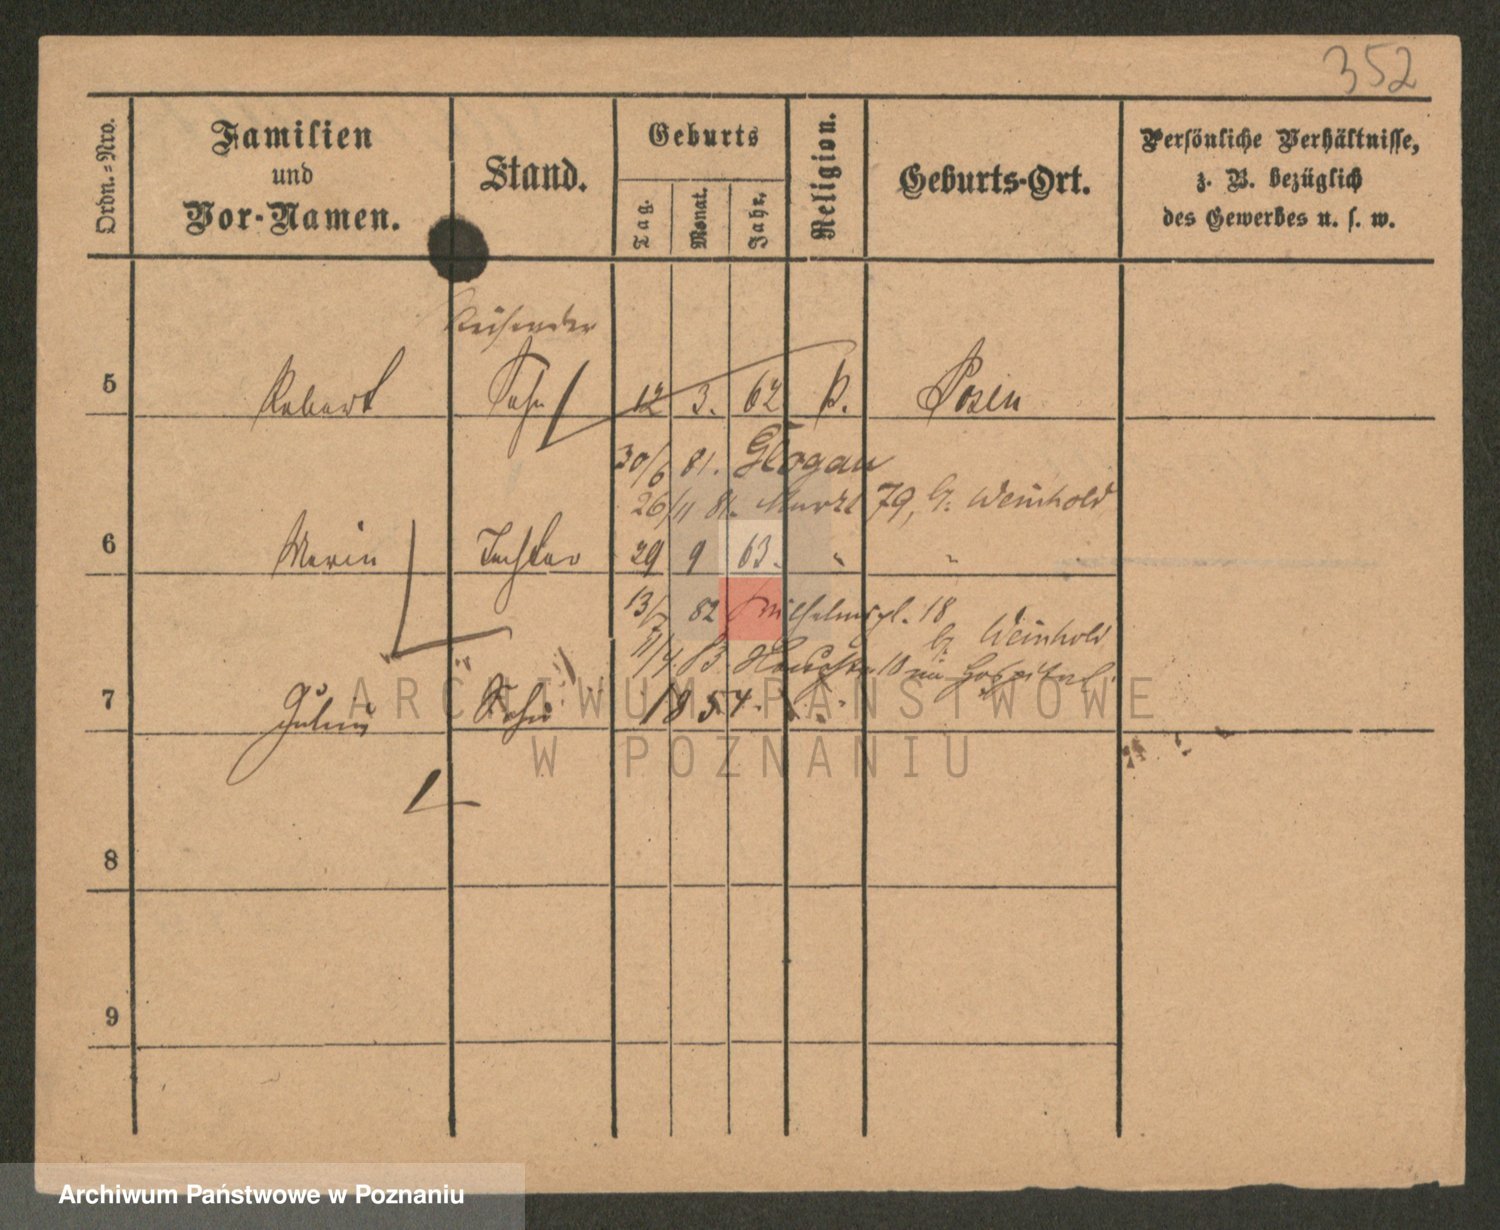 352
Ordn.-Nro.
Familien
und
Vor-Namen.
Stand.
Geburts
Tag.
Monat.
Jahr.
Religion.
Geburts-Ort.
Persönliche Verhältnisse,
z. B. bezüglich
des Gewerbes u. s. w.
Reisender
5 Robert Sohn 12 3. 62 Posen
30/6 81. Glogau
26/11 81. 79, Weinhold
6 Marie Tochter 29 9 63. " "
13/7 82 Wilhelmspl. 18
Weinhold
11/4 83 18 im Hospital.
7 Julius Sohn 1854. "
8
9
ARCHIWUM PAŃSTWOWE
W POZNANIU
Archiwum Państwowe w Poznaniu